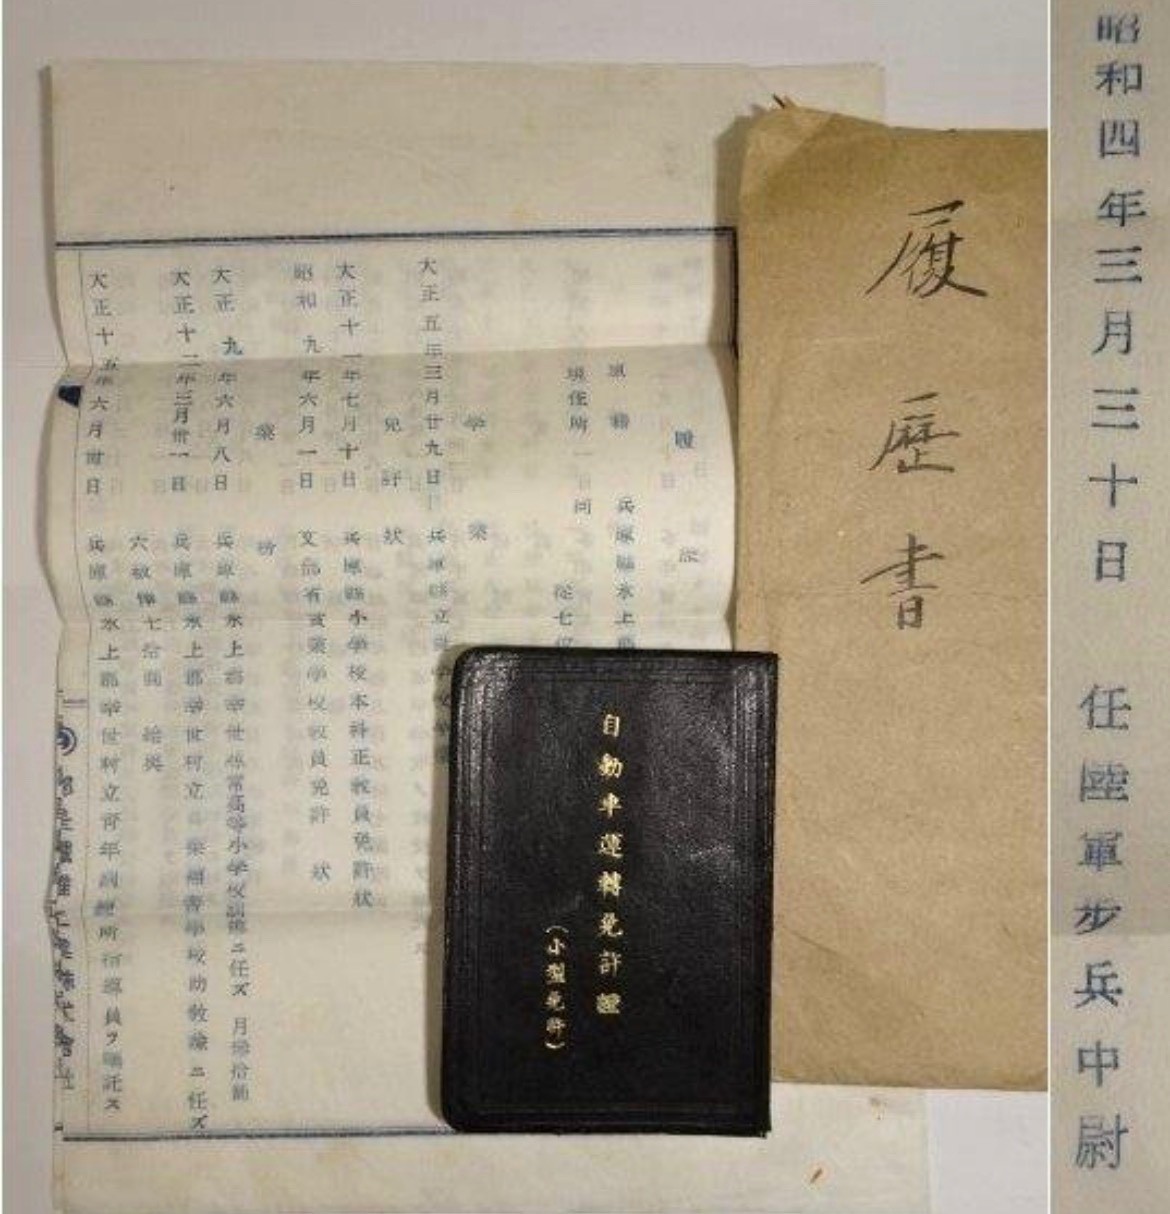 昭和四年三月三十日 任陸軍步兵中尉
履歴書
履歴
原籍 兵庫縣氷上
現住所 同
從七位
学業
大正五年三月廿九日 兵庫縣立
免許狀
大正十一年七月十日 兵庫縣小学校本科正教員免許狀
昭和九年六月一日 文部省実業学校教員免許狀
業務
大正九年六月八日 兵庫縣氷上郡幸世尋常高等小学校訓導ニ任ズ 月俸拾
大正十二年三月卅一日 兵庫縣氷上郡幸世村立実業補習学校助教諭ニ任ズ
六級俸七拾円 給與
大正十五年六月卅日 兵庫縣氷上郡幸世村立青年訓練所指導員ヲ囑託ス
自動車運轉免許證
（小型免許）